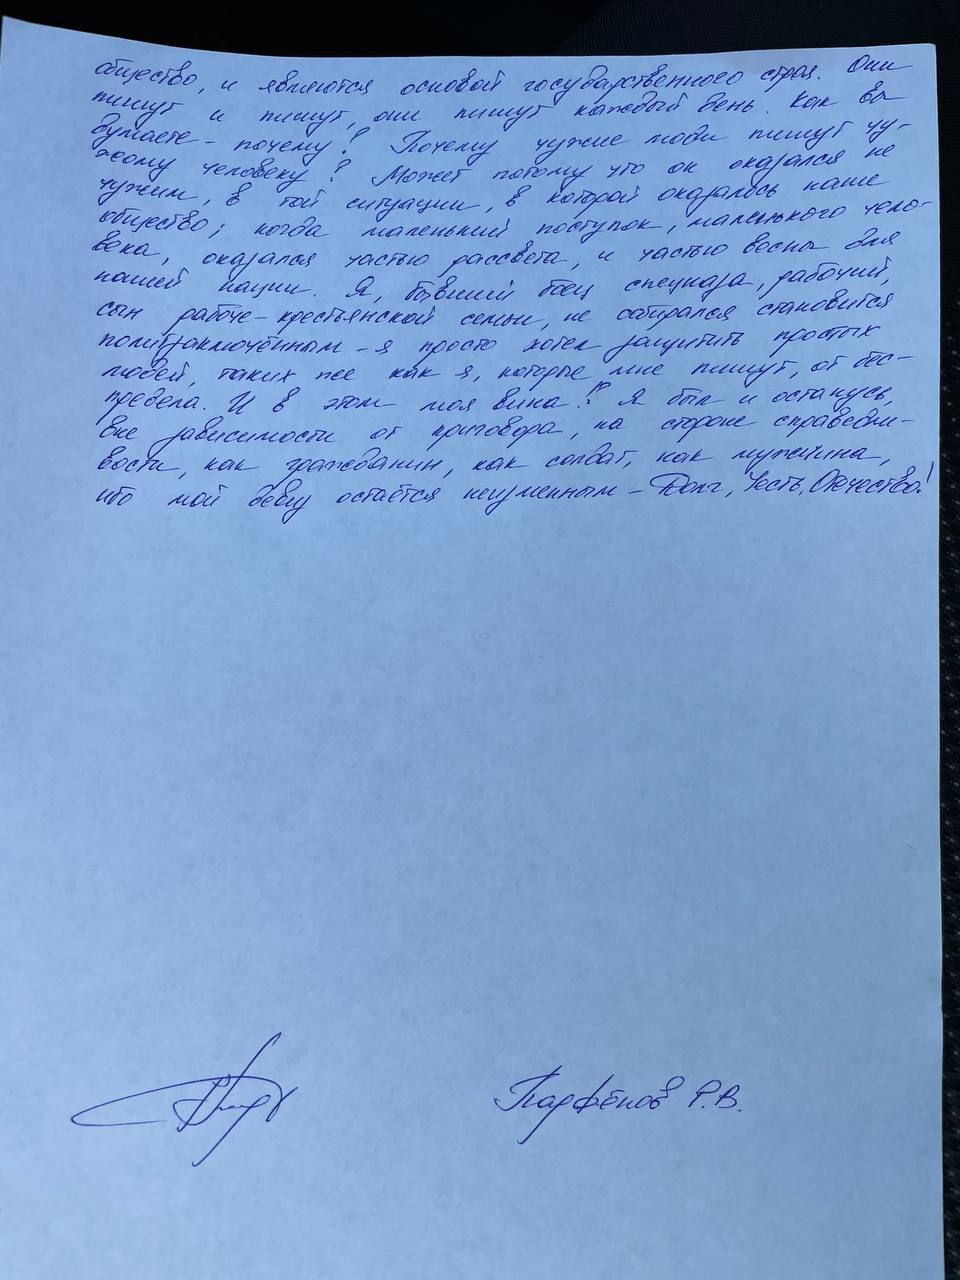 общество, и являются основой государственного строя. Они
пишут и пишут, они пишут каждый день. Как вы
думаете - почему? Почему чужие люди пишут чу-
жому человеку? Может потому что он оказался не
чужим, в той ситуации, в которой оказалось наше
общество; когда маленький поступок, маленького чело-
века, оказался частью рассвета, и частью весны для
нашей нации. Я, бывший боец спецназа, рабочий,
сын рабоче-крестьянской семьи, не собирался становится
политзаключённым - я просто хотел защитить простых
людей, таких же как я, которые мне пишут, от бес-
предела. И в этом моя вина!? Я был и останусь,
вне зависимости от приговора, на стороне справедли-
вости, как гражданин, как солдат, как мужчина,
ибо мой девиз остаётся неизменным - Долг, Честь, Отечество!
Парфёнов Р.В.